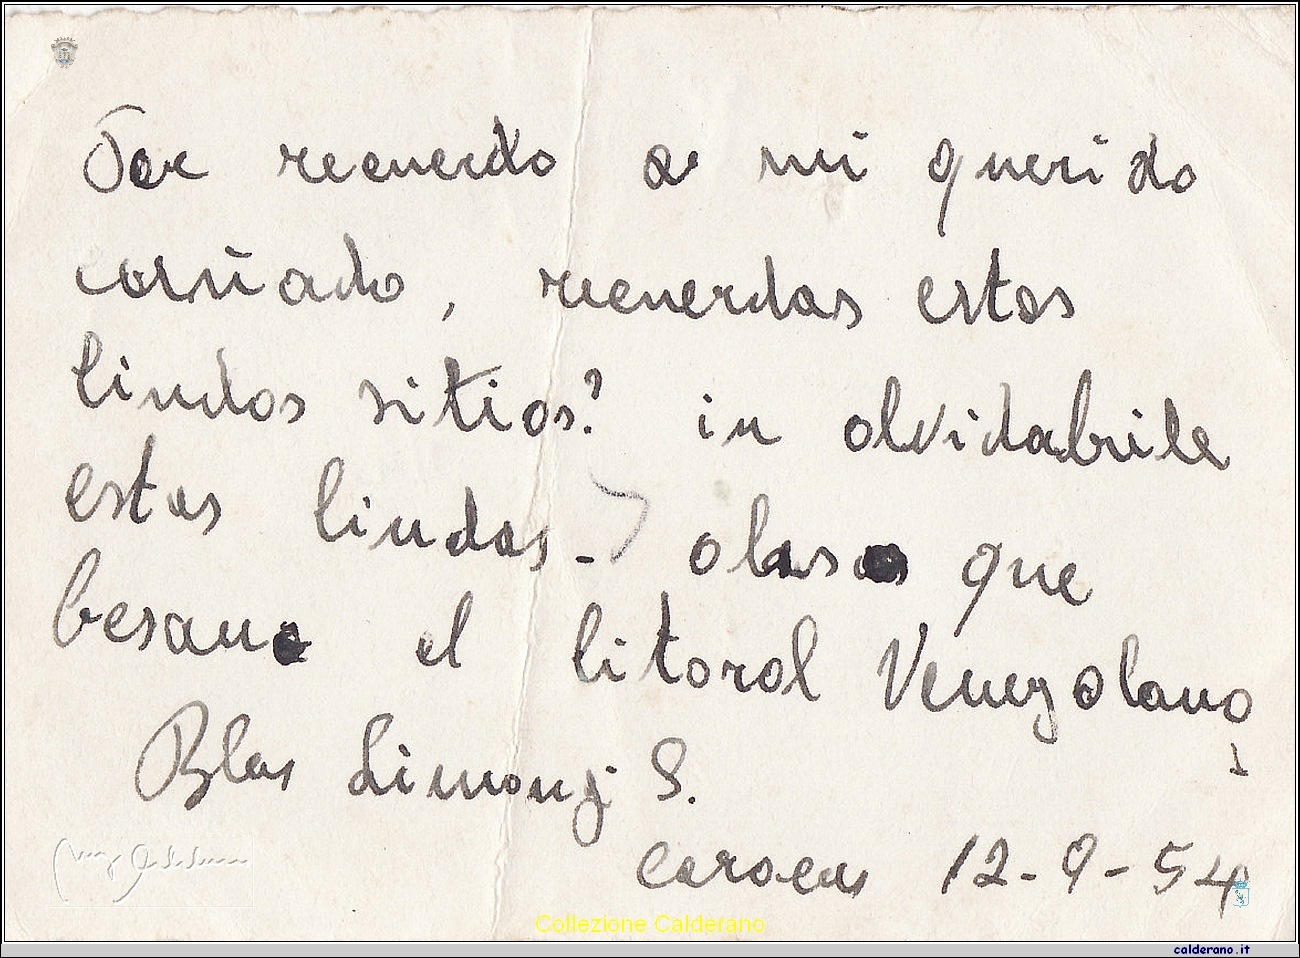 Por recuerdo a mi querido
coruñado, recuerdas estos
lindos sitios? in olvidabile
estas lindas - olas que
besan el litoral Venezolano
Blas Limongi S.
Caracas 12-9-54
Collezione Calderano
calderano.it